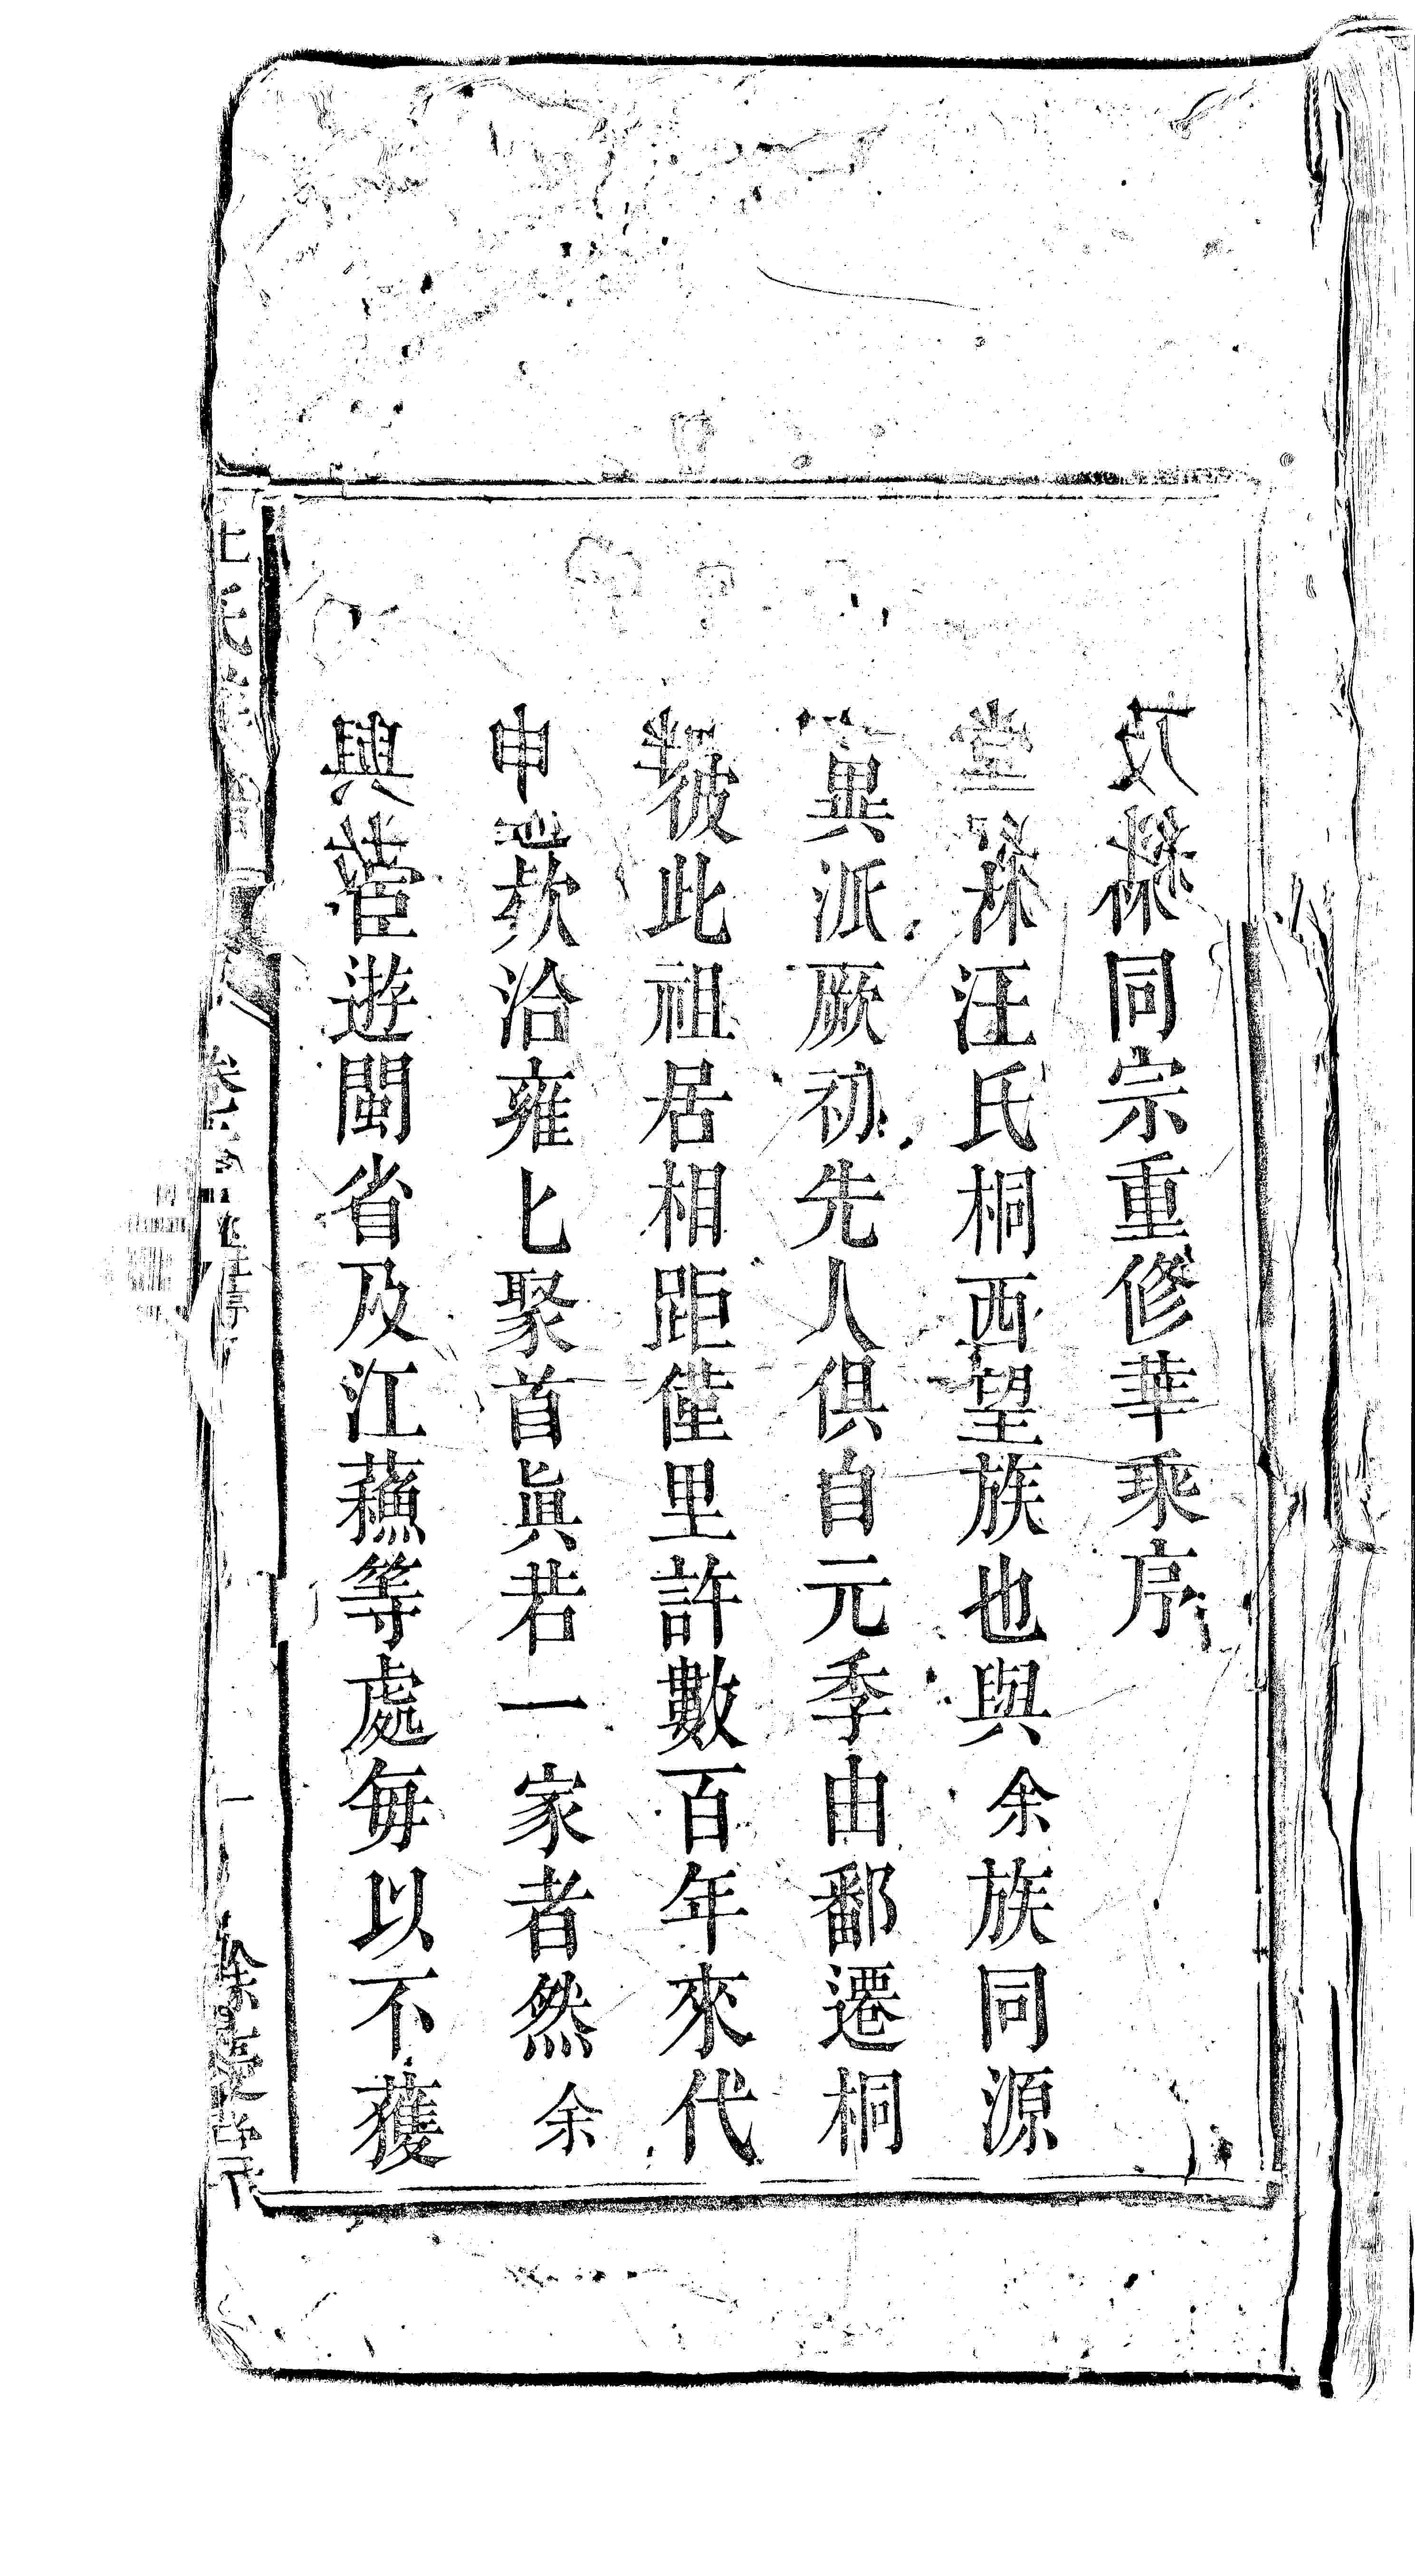 同宗重修華乘序
堂 汪氏桐西望族也與余族同源
異派厥初先人俱自元季由鄱遷桐
彼此祖居相距僅里許數百年來代
申 欵洽雍匕聚首眞若一家者然余
與 宦遊閩省及江蘇等處每以不獲
一